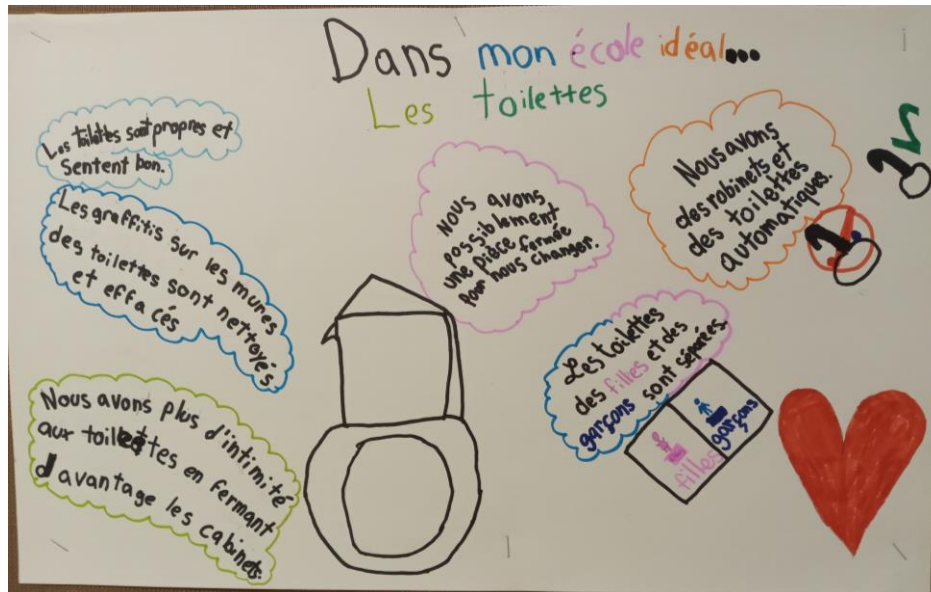 Dans mon école idéal...
Les toilettes
Les toilettes sont propres et
sentent bon.
Les graffitis sur les mures
des toilettes sont nettoyés
et effacés
Nous avons plus d'intimité
aux toilettes en fermant
davantage les cabinets.
Nous avons
possiblement
une pièce fermée
pour nous changer.
Nous avons
des robinets et
des toilettes
automatiques.
Les toilettes
des filles et des
garçons sont séparées.
filles
garçons